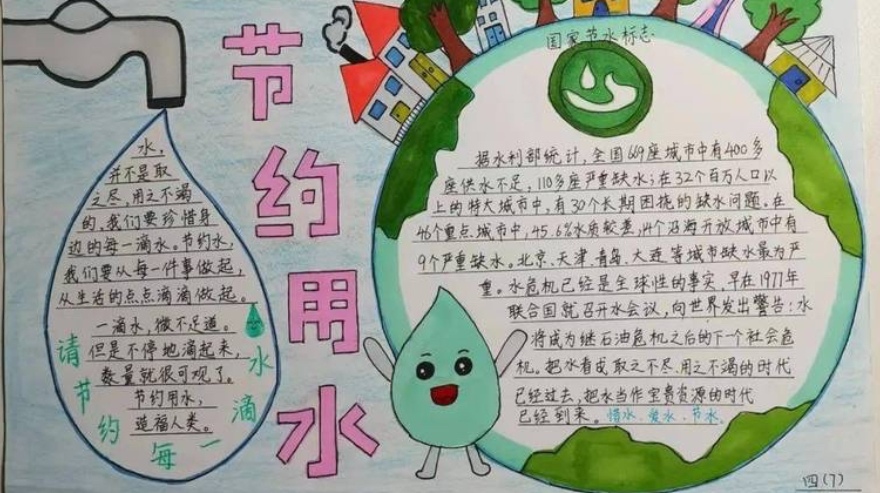 节约用水
水，
并不是取
之尽、用之不竭
的，我们要珍惜身
边的每一滴水。节约水，
我们要从每一件事做起，
从生活的点点滴滴做起。
一滴水，微不足道。
但是不停地滴起来，
数量就很可观了。
节约用水，
造福人类。
请节约每一滴水
国家节水标志
据水利部统计，全国669座城市中有400多
座供水不足，110多座严重缺水；在32个百万人口以
上的特大城市中，有30个长期困挠的缺水问题。在
46个重点城市中，45.6%水质较差，14个沿海开放城市中有
9个严重缺水。北京、天津、青岛、大连等城市缺水最为严
重。水危机已经是全球性的事实，早在1977年
联合国就召开水会议，向世界发出警告：水
将成为继石油危机之后的下一个社会危
机。把水看成取之不尽、用之不竭的时代
已经过去，把水当作宝贵资源的时代
已经到来。惜水、爱水、节水。
四(7)